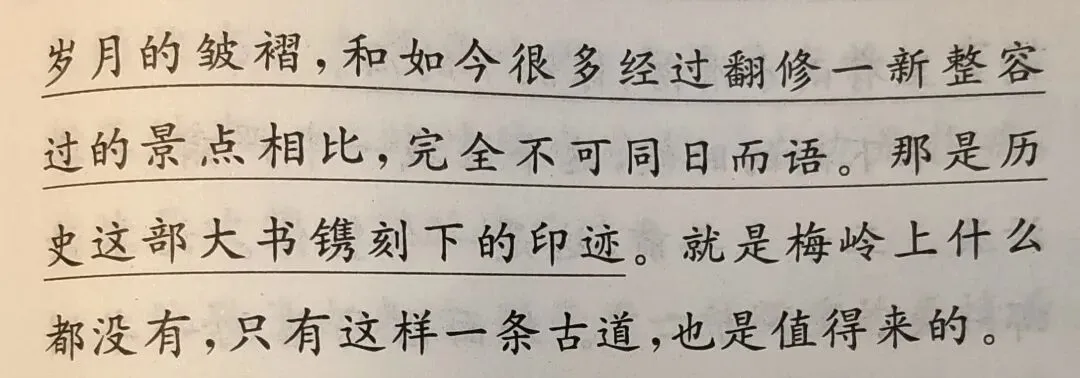 岁月的皱褶，和如今很多经过翻修一新整容
过的景点相比，完全不可同日而语。那是历
史这部大书镌刻下的印迹。就是梅岭上什么
都没有，只有这样一条古道，也是值得来的。